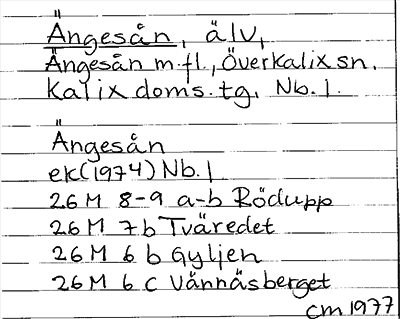 Ängesån, älv,
Ängesån m.fl., Överkalix sn.
Kalix doms.tg. Nb. l.
Ängesån
ek(1974) Nb. l
26 M 8-9 a-b Rödupp
26 M 7 b Tväredet
26 M 6 b Gyljen
26 M 6 c Vännäsberget
cm 1977